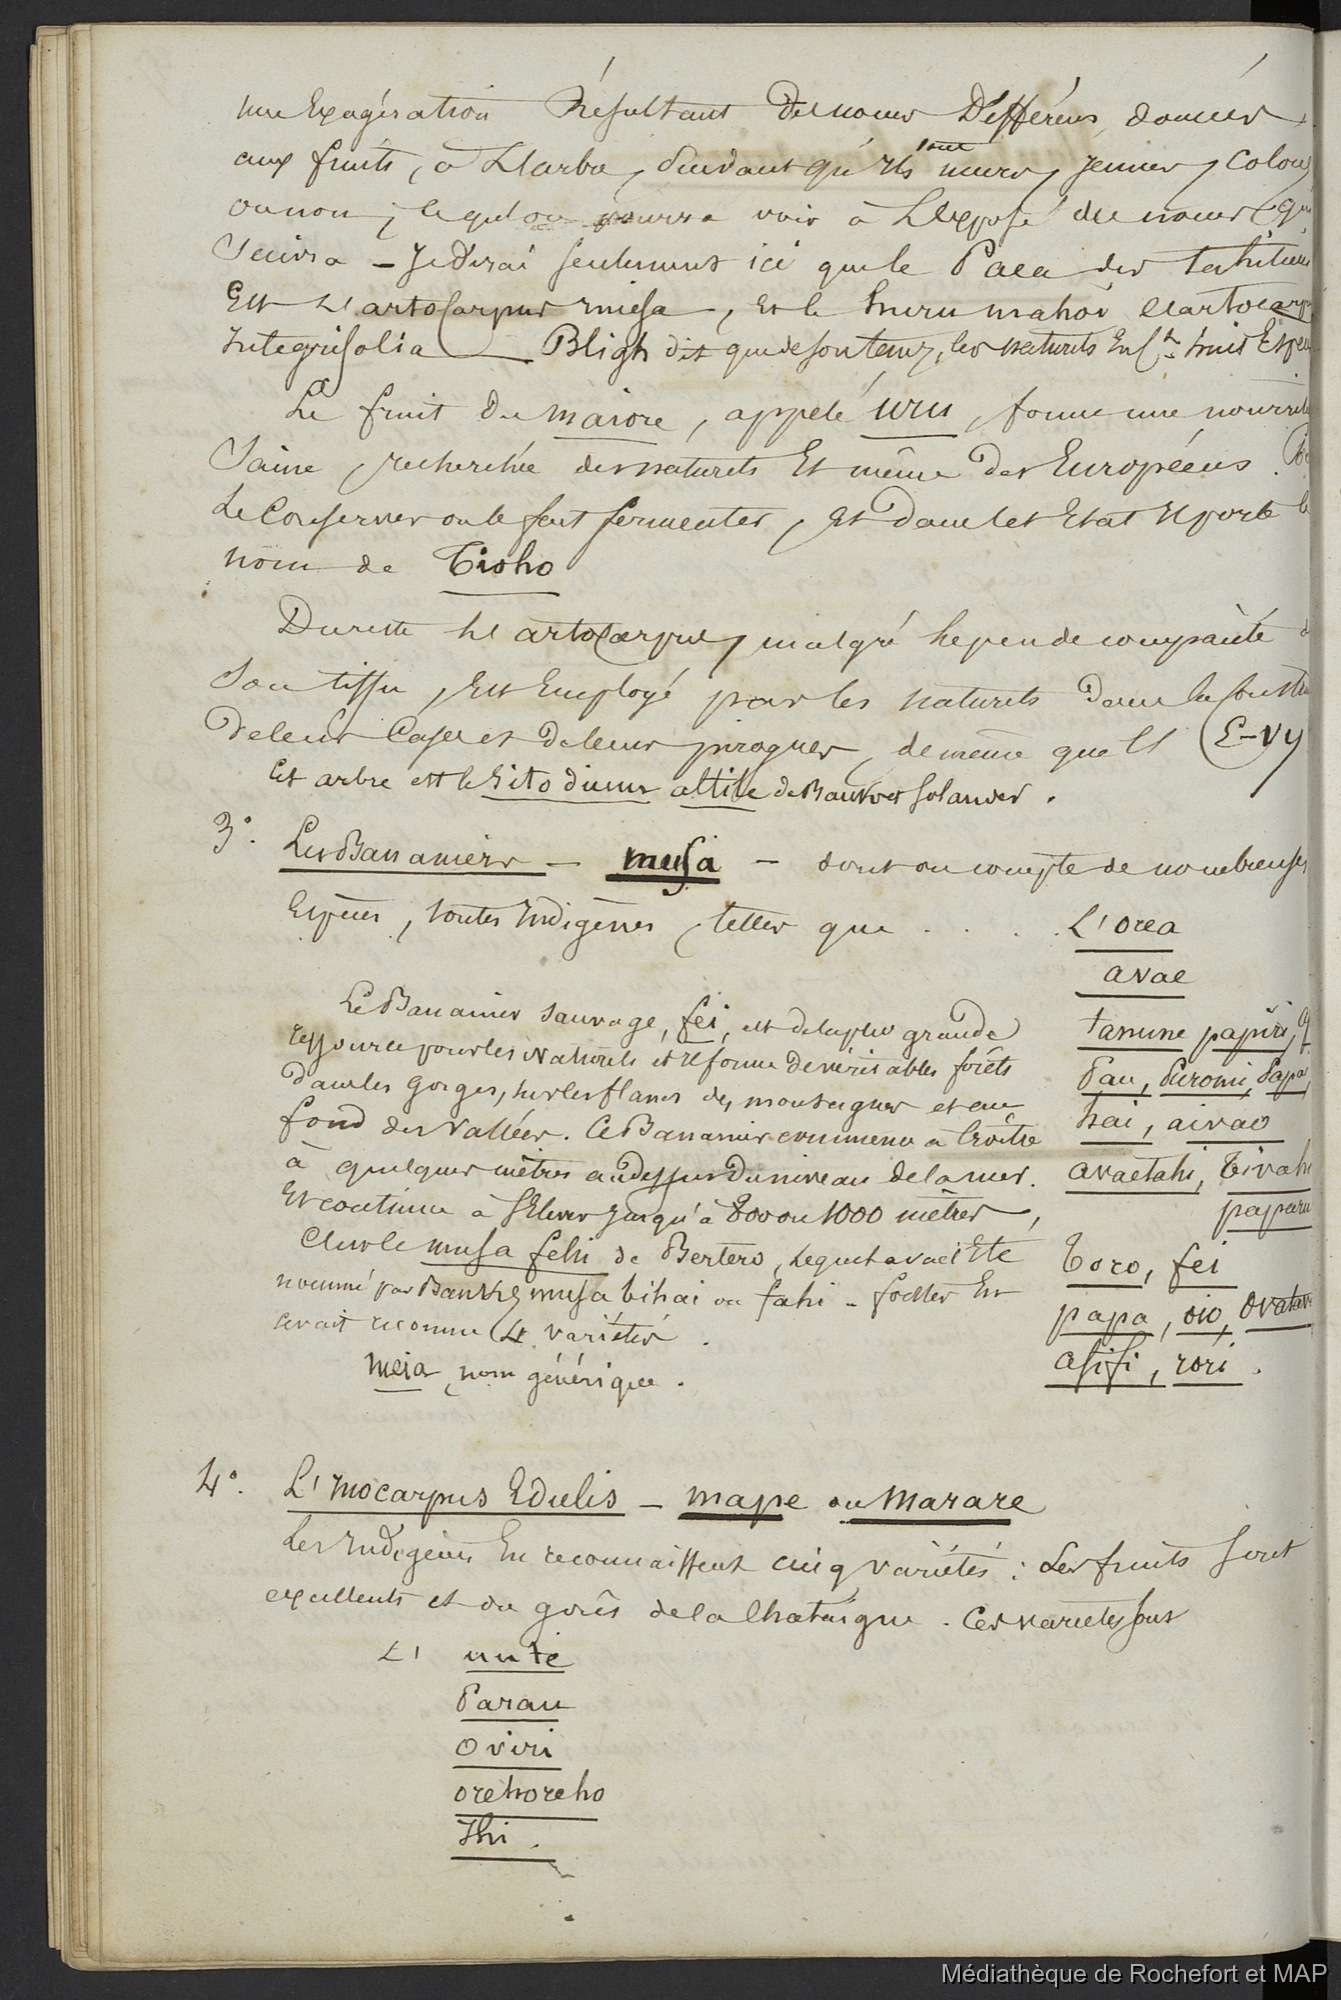 une Exagération Résultant des noms Différens, donnés
aux fruits, à L'arbre, suivant qu'ils sont murs, jeunes, colon
ou non ; ce qu'on pourra voir à L'Exposé des noms qui
suivra – Je dirai seulement ici que le Paea des tahitiens
Est L'artocarpus incisa, et le huru mahoi l'artocarp
Integrifolia — Bligh dit que de son temps, les naturels En Ctt huit Espe
Le fruit du maiore, appelé uru, forme une nourrit
Saine, recherchée des naturels Et même des Européens.
Le Conserver on le fait fermenter, Et dans cet Etat il porte le
nom de Tioho
Du reste L'artocarpus, malgré le peu de compacité d
Son tissu, Est Employé par les naturels dans la Constru
De leurs Cases et de leurs pirogues, de même que l' E-Vy
Cet arbre est le Sitodium altile de Banks et Solander.
3°. Les Bananiers – musa – dont on compte de nombreuses
Espèces, toutes Indigènes, telles que . . . . L'orea
avae
Le Bananier sauvage, fei, est de la plus grande
ressource pour les Naturels et il forme de véritables forêts
dans les gorges, sur les flancs des montagnes et au
fond des Vallées. Ce Bananier commence à Croître
à quelques mètres au dessus Du niveau de la mer.
Et continue à s'Elever jusqu'à 800 ou 1000 mètres,
C'est le musa fehi de Bertero, lequel avait Eté
nommé par Banks musa bihai ou fahi – Forster En
avait reconnu 4 variétés.
meia, nom générique.
tamene papiri,
Pau, Puromi, Papa
hai, aivao
avaetahi, Tivahi
paparu
Toro, fei
papa, oio, Ovatav
afifi, rori.
4°. L'Inocarpus Edulis – mape ou Marare
Les Indigènes En reconnaissent cinq variétés : Les fruits sont
excellents et du goût de la Chataigne. Ces variétés sont
L' unte
Parau
Oviri
orehoreho
Ihi.
Médiathèque de Rochefort et MAP